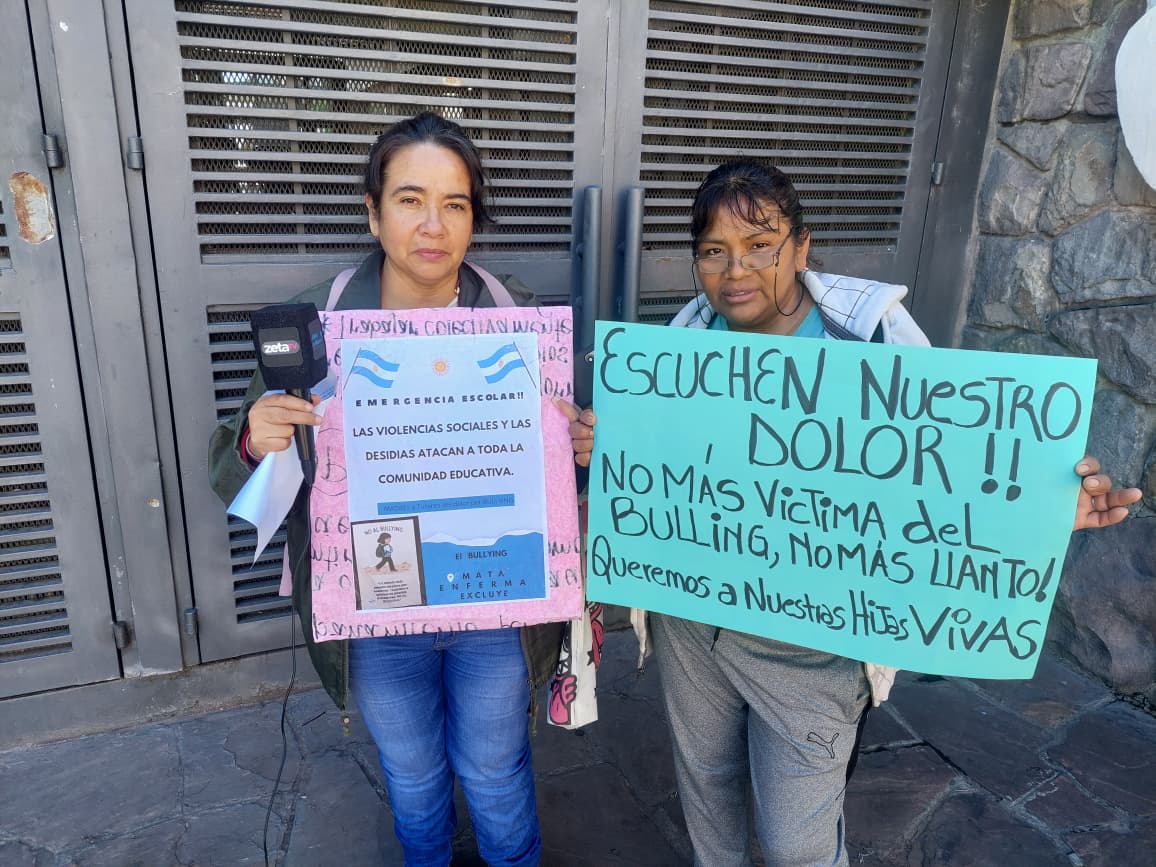 zeta
Trabajar colectivamente
EMERGENCIA ESCOLAR!!
LAS VIOLENCIAS SOCIALES Y LAS
DESIDIAS ATACAN A TODA LA
COMUNIDAD EDUCATIVA.
NO AL BULLYING
El BULLYING
MATA
ENFERMA
EXCLUYE
ESCUCHEN NUESTRO
DOLOR !!
NO MÁS VICTIMA del
BULLING, NO MÁS LLANTO!
Queremos a Nuestras Hijas VIVAS